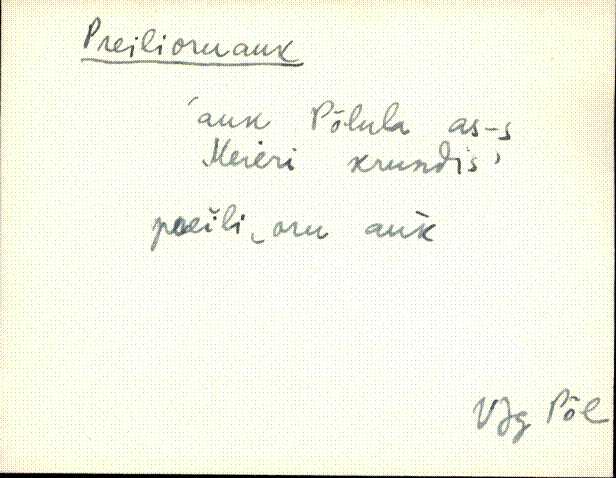 Preilioruauk
'auk Põlula as-s
Meieri krundis'
preili‿oru auk
VJg Põl